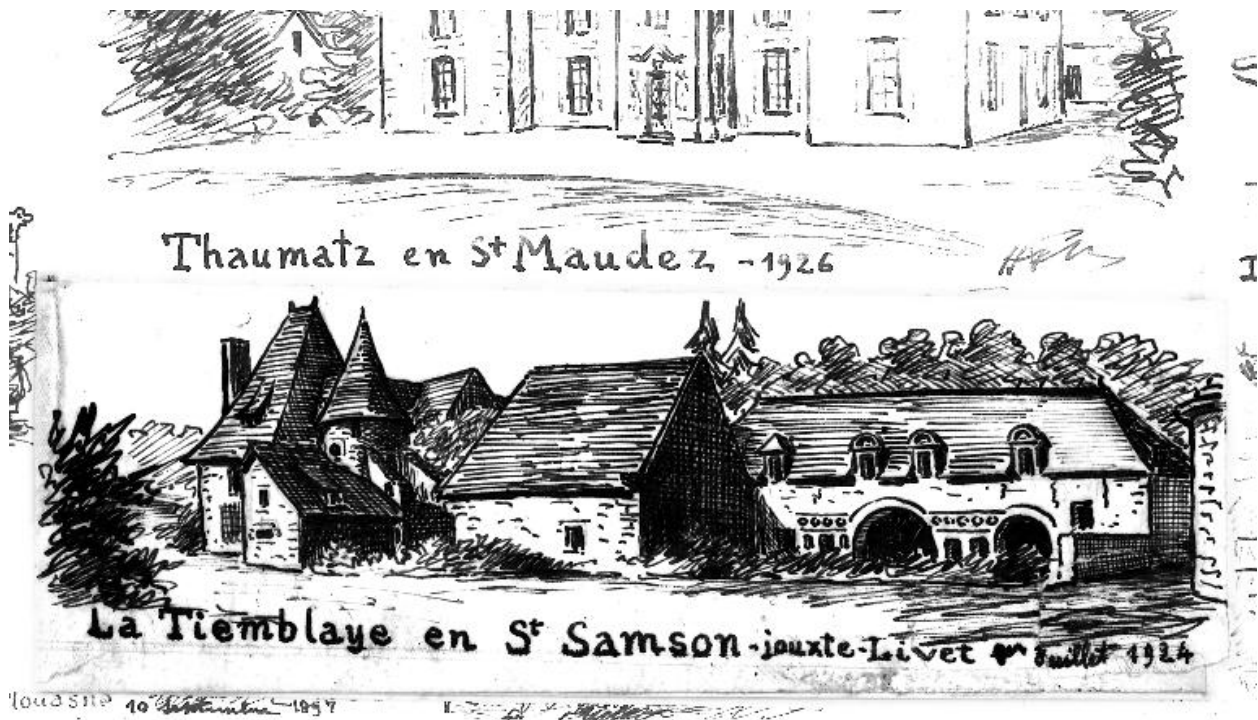 Thaumatz en St Maudez - 1926
La Tiemblaye en St Samson-jouxte-Livet Juillet 1924
1897